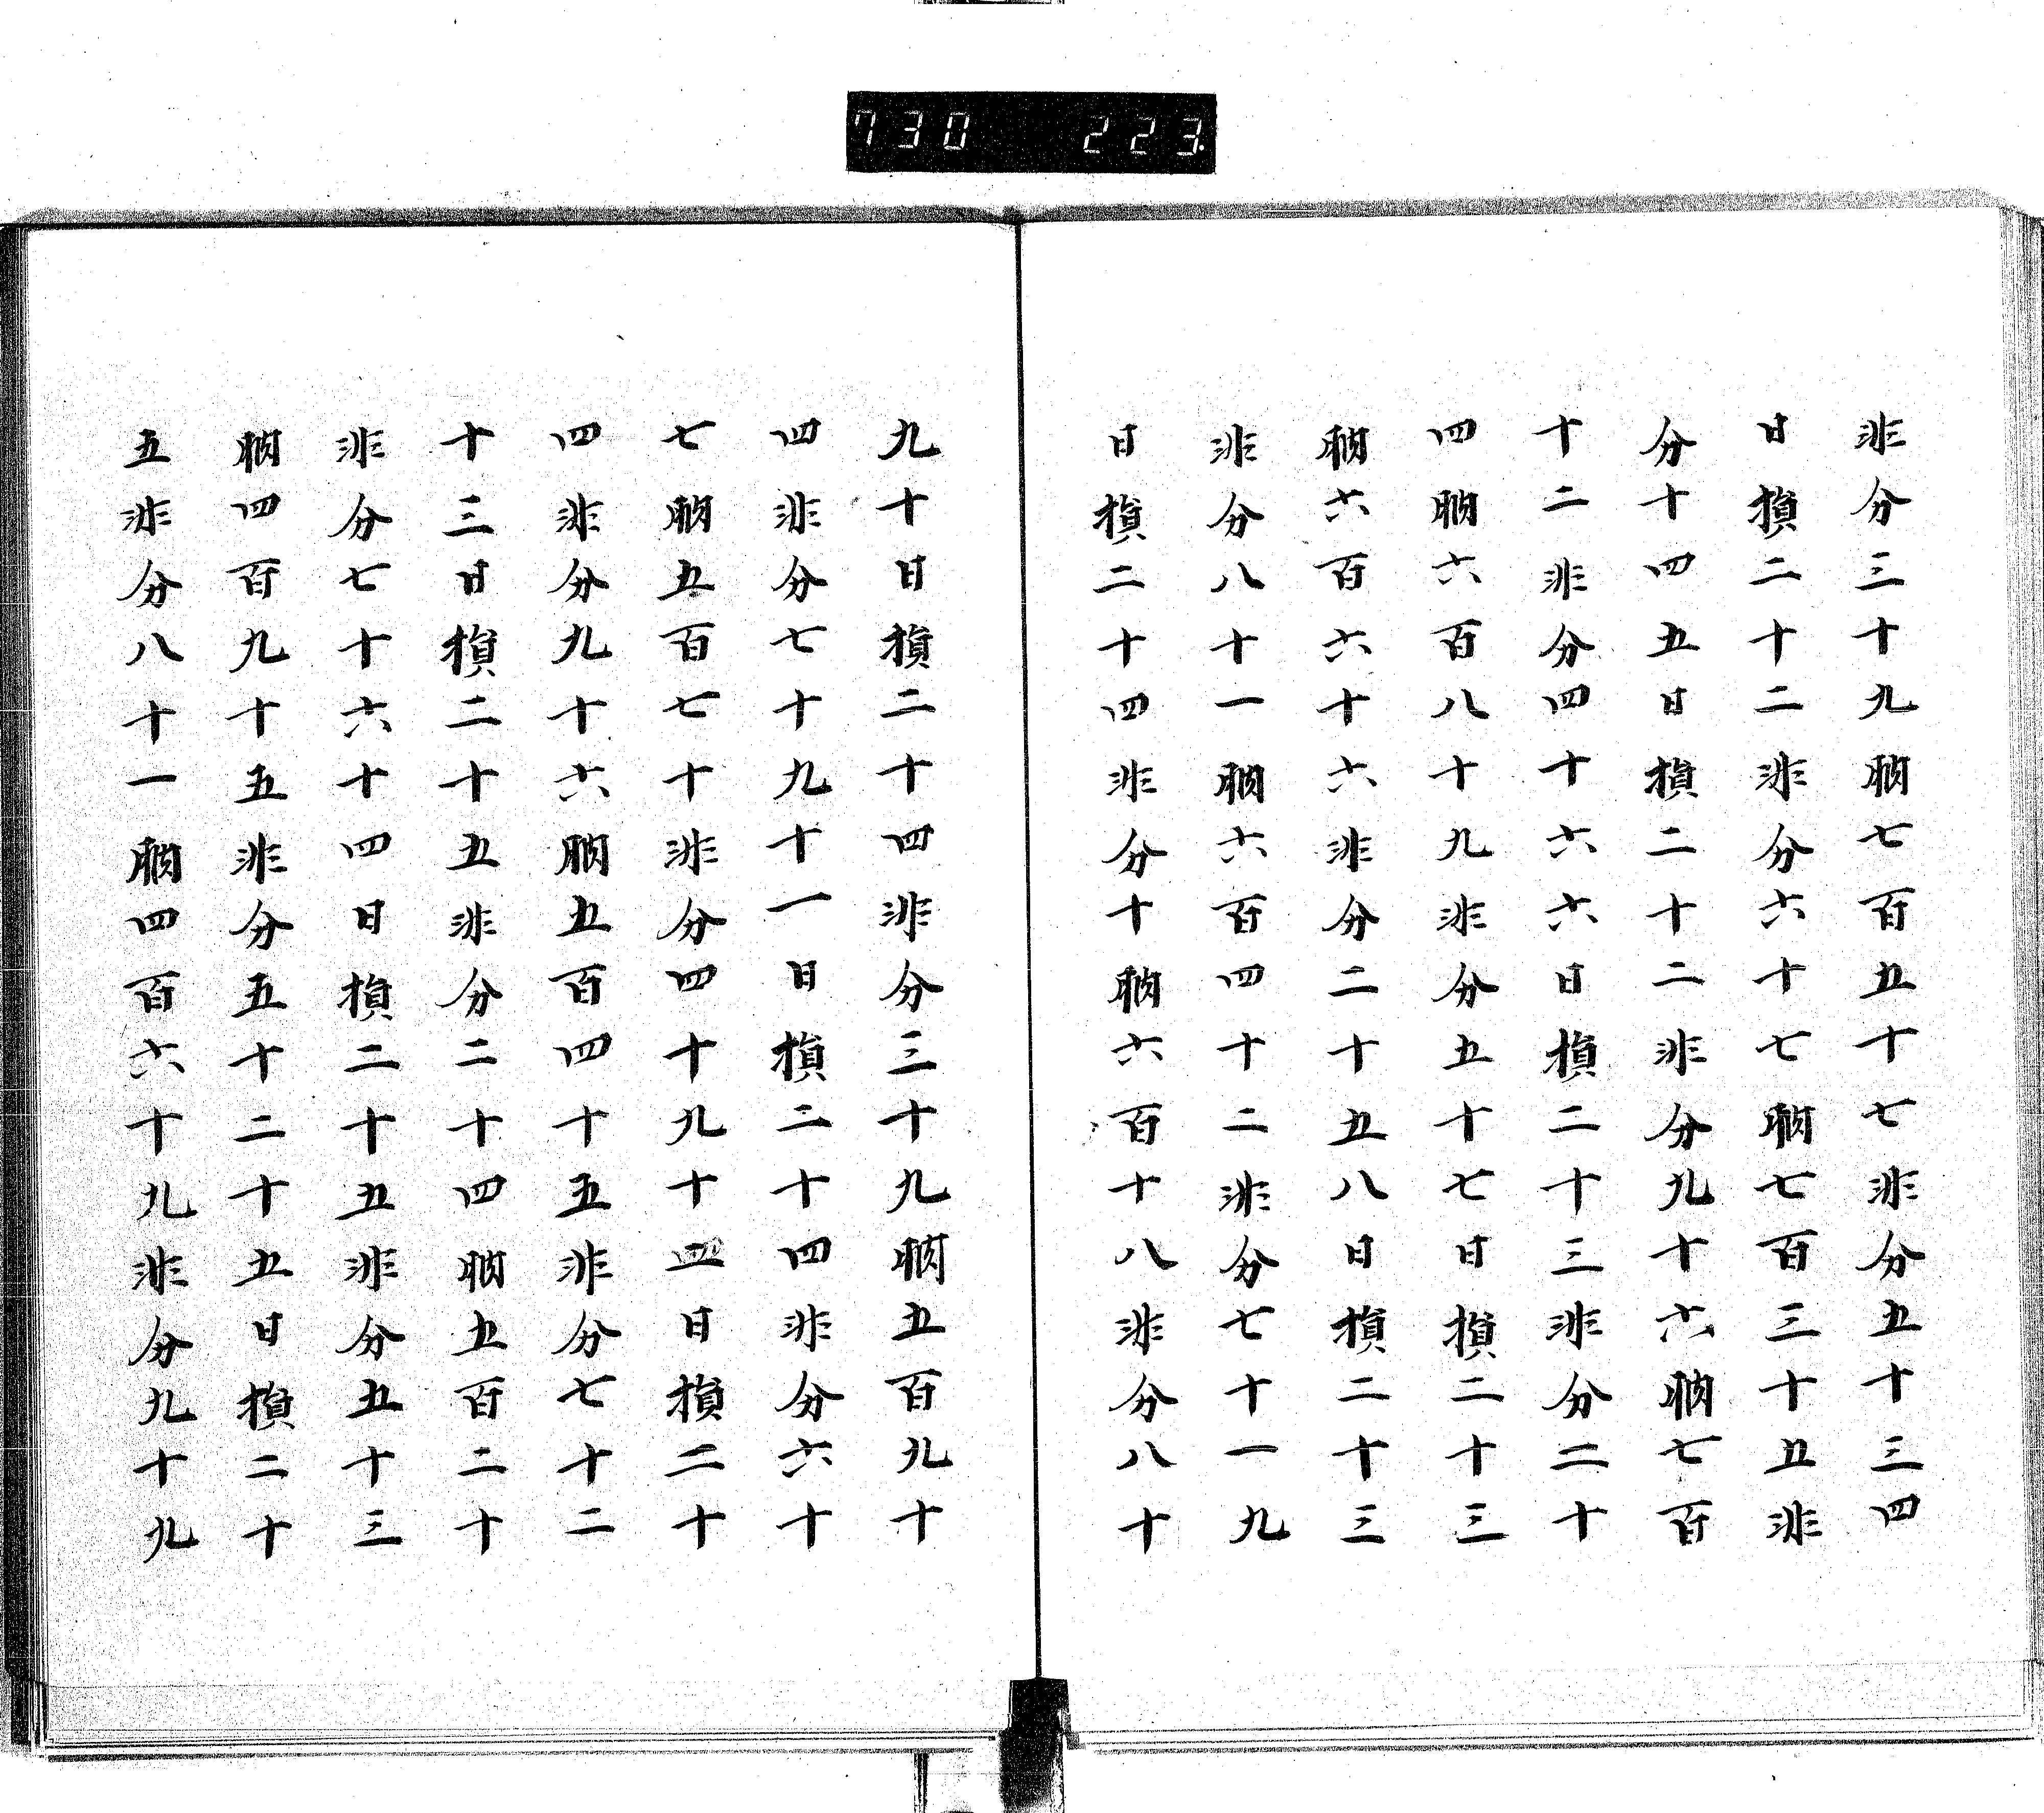 730 223.
非分三十九朒七百五十七非分五十三四
日損二十二非分六十七朒七百三十五非
分十四五日損二十二非分九十六朒七百
十二非分四十六六日損二十三非分二十
四朒六百八十九非分五十七日損二十三
朒六百六十六非分二十五八日損二十三
非分八十一朒六百四十二非分七十一九
日損二十四非分十朒六百十八非分八十
九十日損二十四非分三十九朒五百九十
四非分七十九十一日損二十四非分六十
七朒五百七十非分四十九十二日損二十
四非分九十六朒五百四十五非分七十二
十三日損二十五非分二十四朒五百二十
非分七十六十四日損二十五非分五十三
朒四百九十五非分五十二十五日損二十
五非分八十一朒四百六十九非分九十九